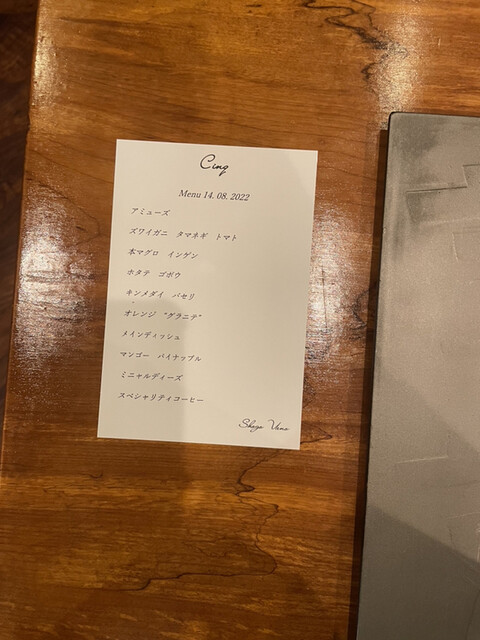 Cinq
Menu 14. 08. 2022
アミューズ
ズワイガニ タマネギ トマト
本マグロ インゲン
ホタテ ゴボウ
キンメダイ パセリ
オレンジ “グラニテ”
メインディッシュ
マンゴー パイナップル
ミニャルディーズ
スペシャリティコーヒー
Shogo Ueno